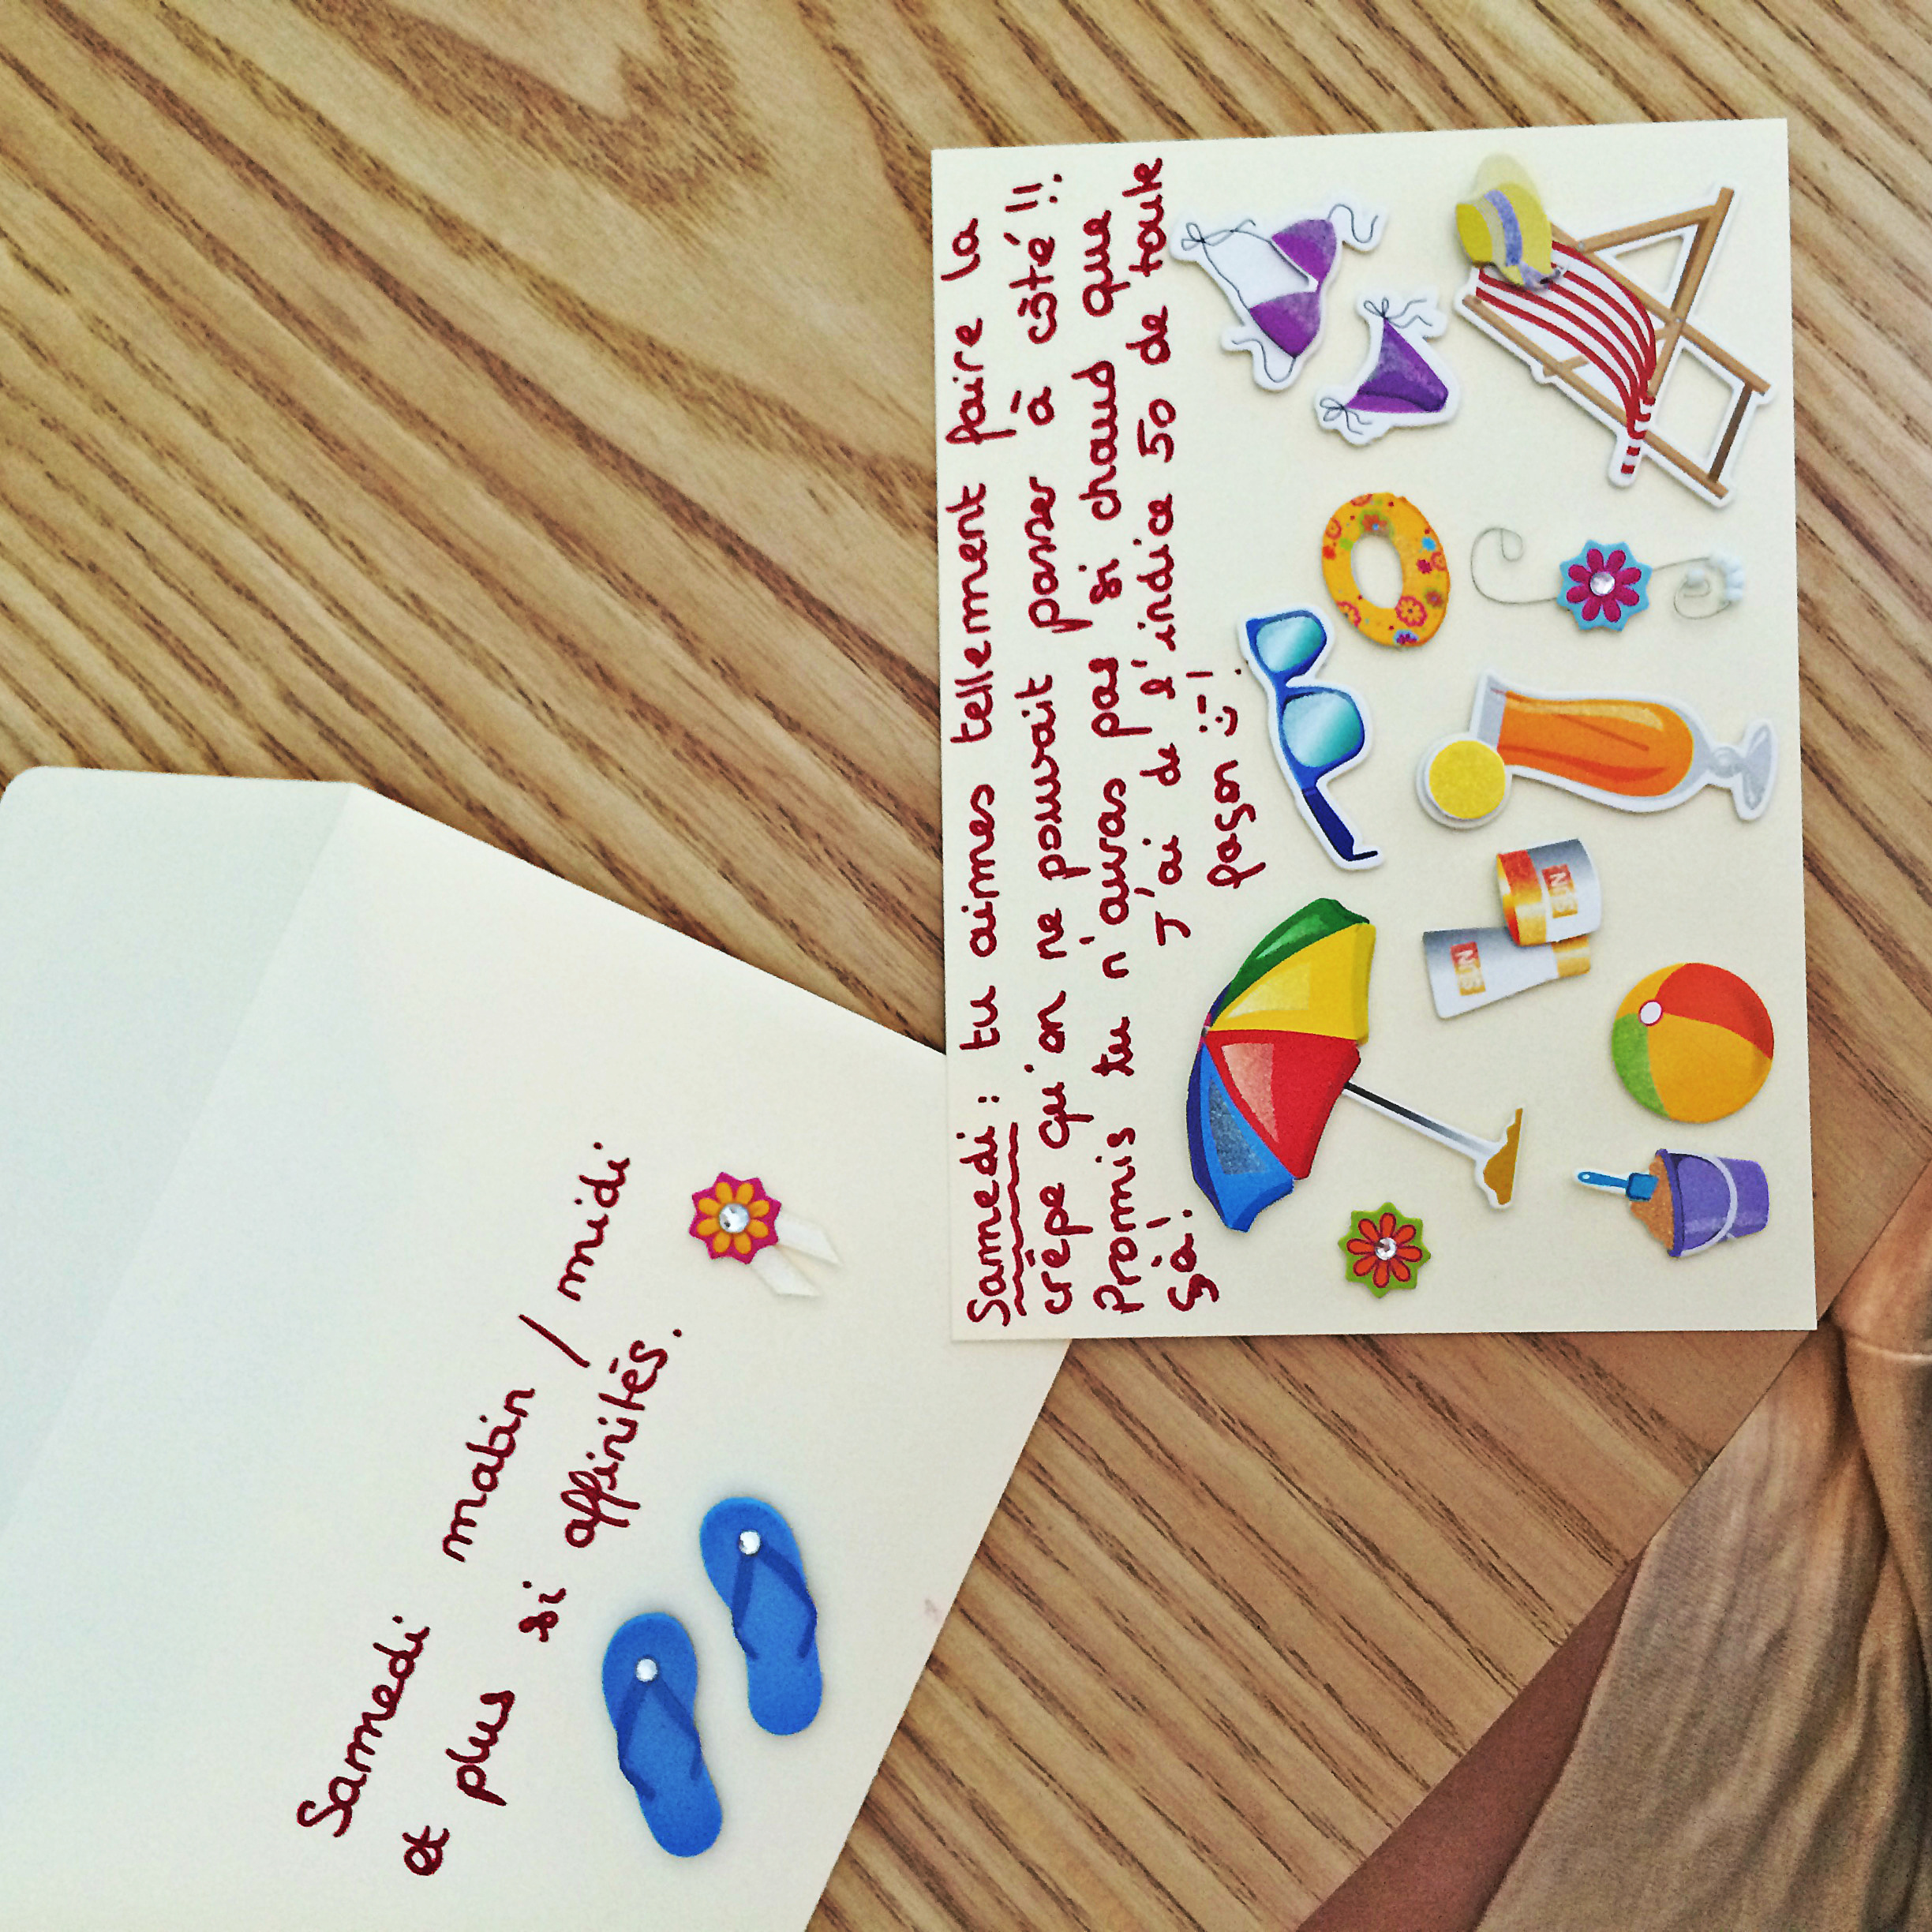 Samedi : tu aimes tellement faire la
crêpe qu'on ne pouvait passer à côté !!
Promis tu n'auras pas si chaud que
ça! J'ai de l'indice 50 de toute
façon :-)!
SUN
SUN
Samedi matin / midi
et plus si affinités.